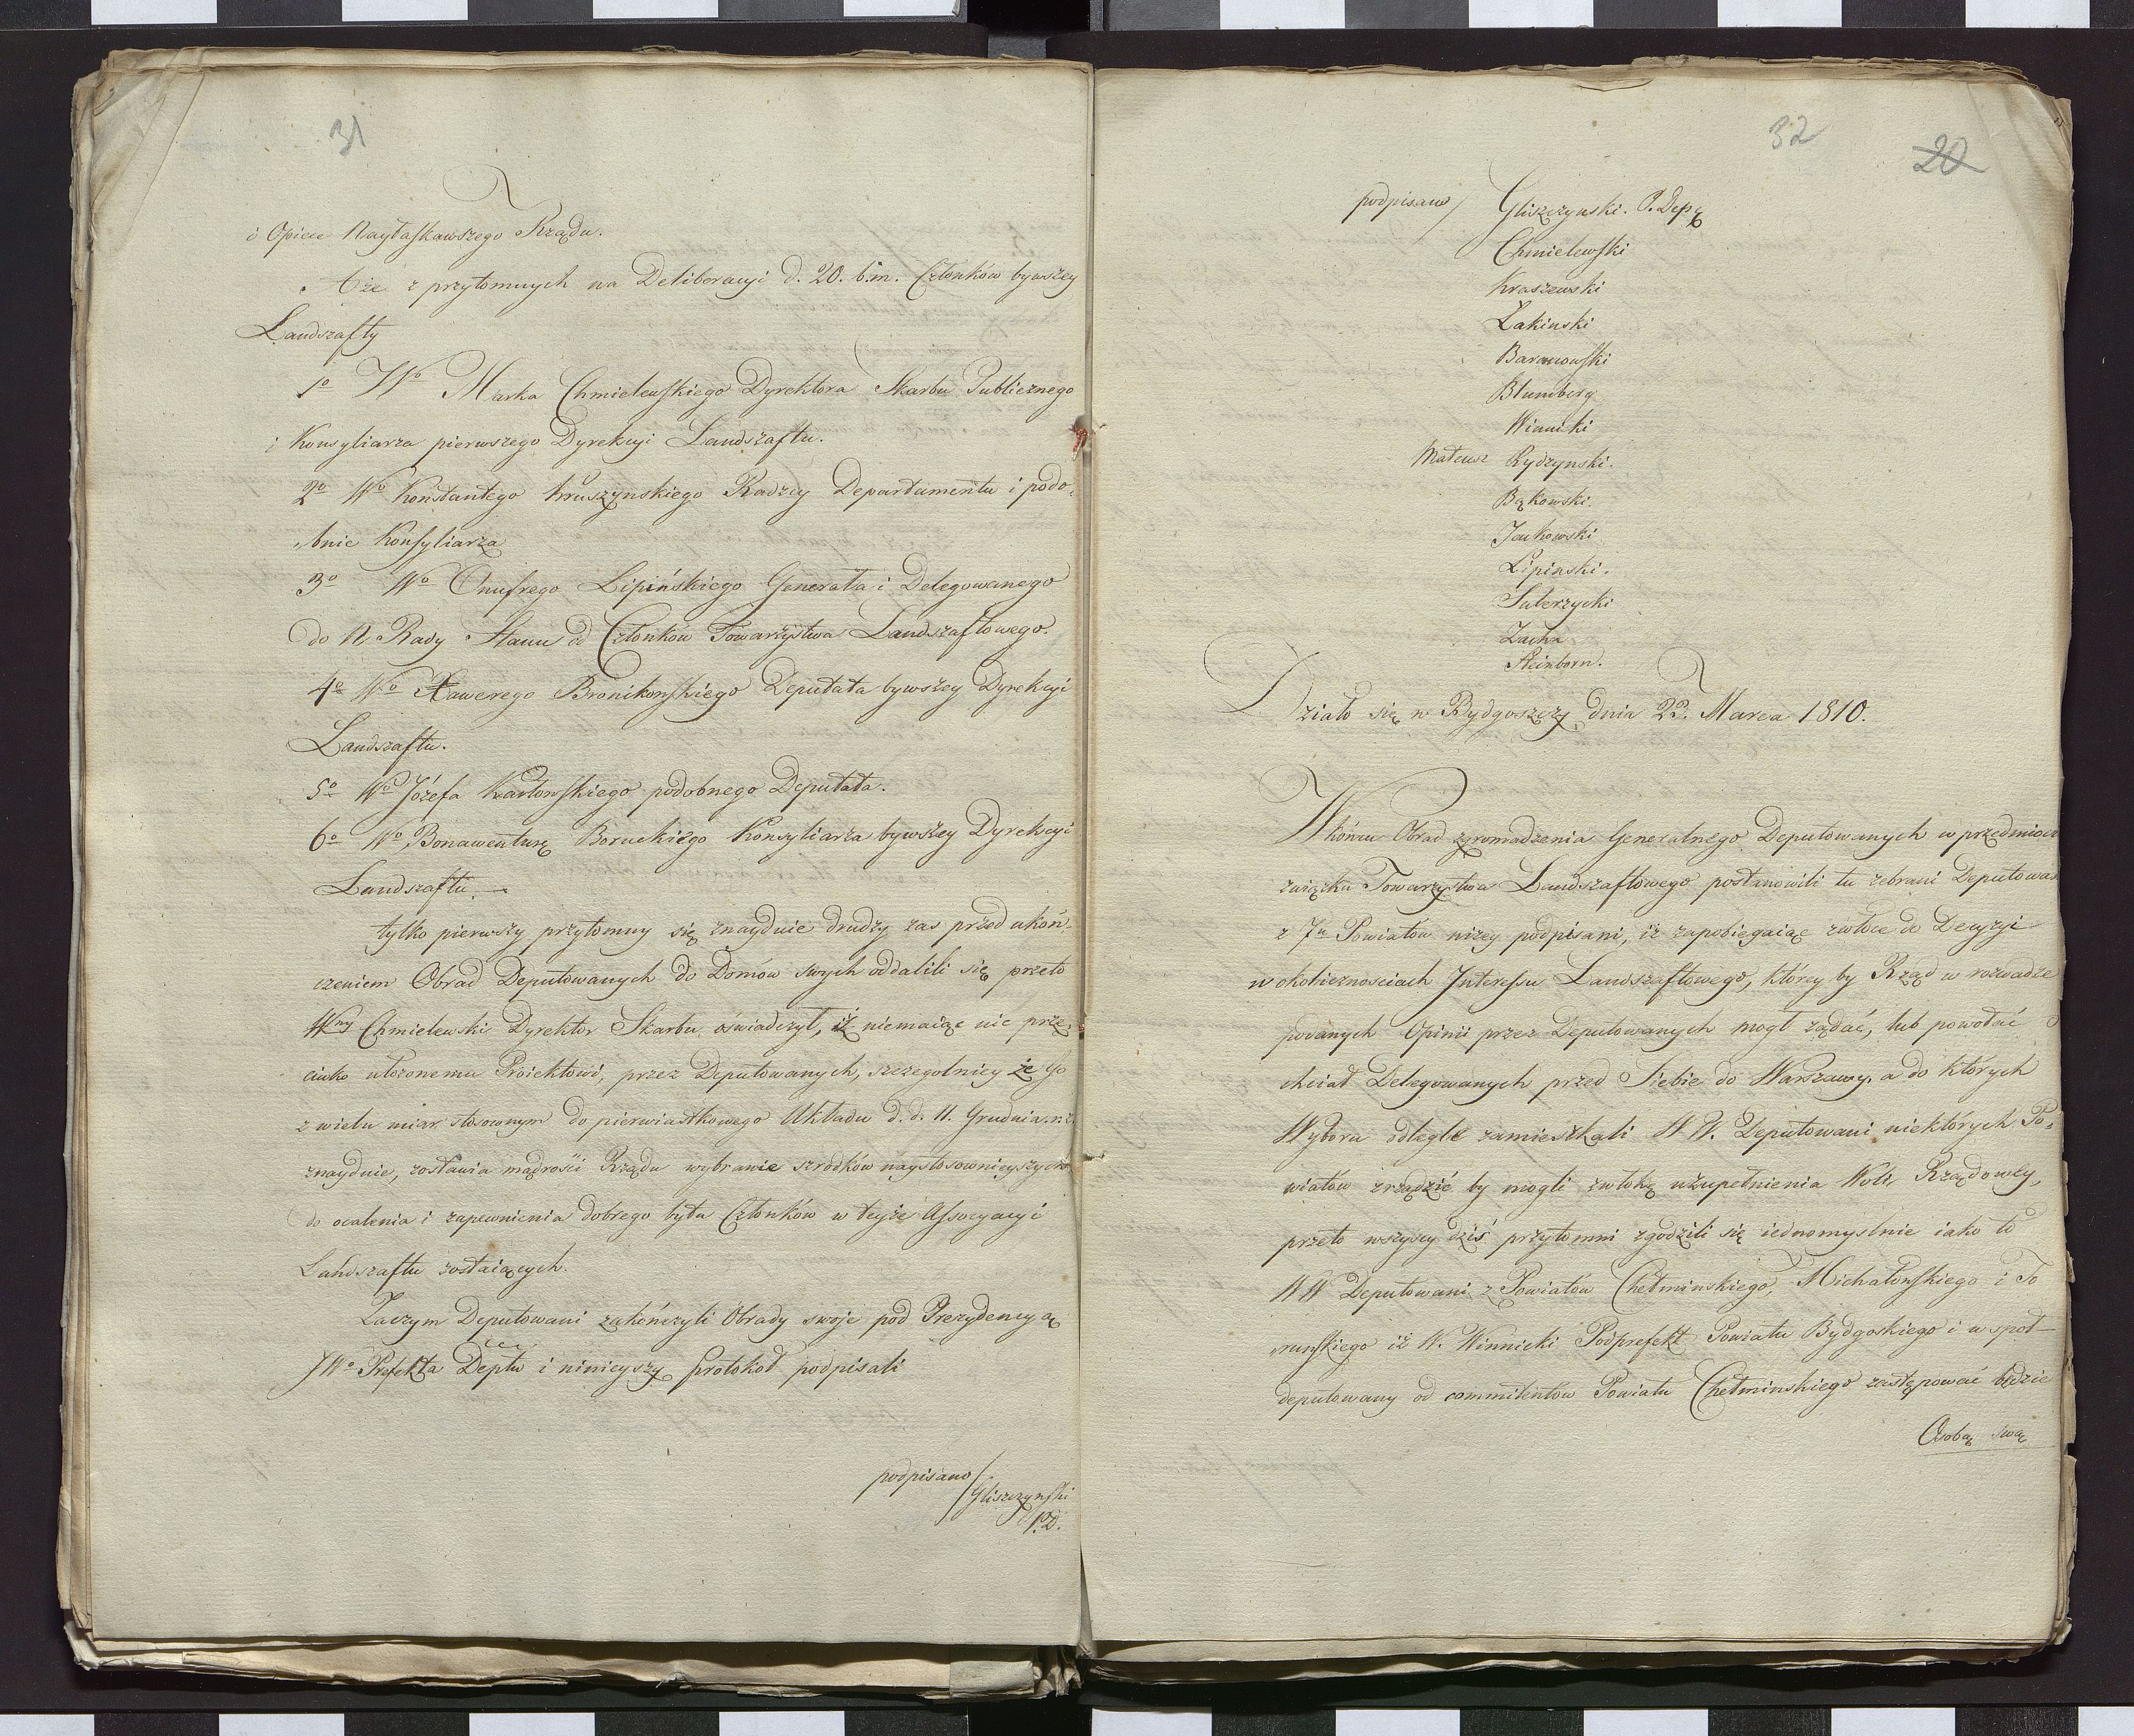 31
i Opiece Nayłaskawszego Rządu.
A że z przytomnych na Deliberacyi d. 20. b.m. Członków bywszey
Landszafty
1o Wo Marka Chmielewskiego Dyrektora Skarbu Publicznego
i Konsyliarza pierwszego Dyrekcyi Landszaftu.
2o Wo Konstantego Kruszynskiego Radzcy Departamentu i podo-
-bnie Konsyliarza
3o Wo Onufrego Lipińskiego Generała i Delegowanego
do N. Rady Stanu od Członków Towarzystwa Landszaftowego.
4o Wo Xawerego Bronikowskiego Deputata bywszey Dyrekcyi
Landszaftu.
5o Wo Józefa Karłowskiego podobnego Deputata.
6o Wo Bonawenturę Boruckiego Konsyliarza bywszey Dyrekcyi
Landszaftu —
tylko pierwszy przytomny się znayduie drudzy zas przed ukoń-
czeniem Obrad Deputowanych do Domów swych oddalili się przeto
Wny Chmielewski Dyrektor Skarbu oświadczył, iż niemaiąc nic prze-
ciwko ułożonemu Proiektowi, przez Deputowanych, szczegolniey że Go
z wielu miar stosownym do pierwiastkowego Układu d. d. 11. Grudnia
znayduie, zostawia mądrości Rządu wybranie szrodków naystosownieyszych
do ocalenia i zapewnienia dobrego bytu Członków w teyże Assocyacyi
Landszaftu zostaiących.
Zaczym Deputowani zakończyli Obrady swoje pod Prezydencyą
JWo Prefekta Deptu i ninieyszy protokoł podpisali
podpisano/ Gliszczynski
P.D.
32
20
podpisano/ Gliszczynski. P. Dep
Chmielewski
Kraszewski
Łakinski
Baranowski
Blumberg
Winnicki
Mateusz Rydzynski.
Bąkowski.
Jackowski
Lipinski.
Suterzycki
Zacha
Steinborn.
Działo się w Bydgoszczy dnia 22. Marca 1810.
W końcu Obrad zgromadzenia Generalnego Deputowanych w przedmiocie
związku Towarzystwa Landszaftowego postanowili tu zebrani Deputowani
z 7u Powiatów niżey podpisani, iż zapobiegaiąc zwłoce do Decyzyi
w okolicznosciach Interessu Landszaftowego, którey by Rząd w rozwadze
podanych Opinii przez Deputowanych mogł ządać, lub powołać
chciał Delegowanych przed Siebie do Warszawy, a do których
Wyboru odlegle zamieszkali W W. Deputowani niektórych Po-
wiatów zrządzić by mogli zwłokę uzupełnienia Woli Rządowey,
przeto wszyscy dziś przytomni zgodzili się iednomyslnie iako to
W W Deputowani z Powiatów Chełminskiego, Michałowskiego i To
runskiego iż W. Winnicki Podprefekt Powiatu Bydgoskiego i wspoł-
deputowany od commitentów Powiatu Chełminskiego zastępować będzie
Osobą swą